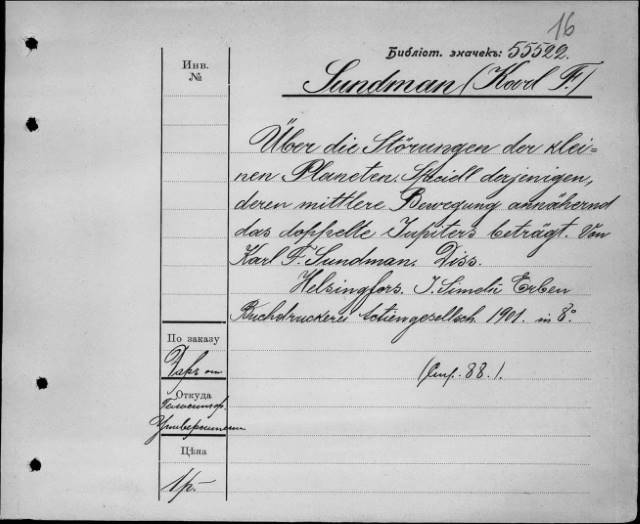 16
Библіот. значекъ: 55522.
Инв.
№
Sundman (Karl F.)
Über die Störungen der klei=
nen Planeten, Speciell derjenigen,
deren mittlere Bewegung annähernd
das doppelte Jupiters beträgt. Von
Karl F. Sundman. Diss.
Helsingfors. J. Simelii Erben
Buchdruckerei Actiengesellsch. 1901. in 8°.
(Стр. 88.).
По заказу
Даръ отъ
Откуда
Гельсингфор.
Университета
Цѣна
1р-